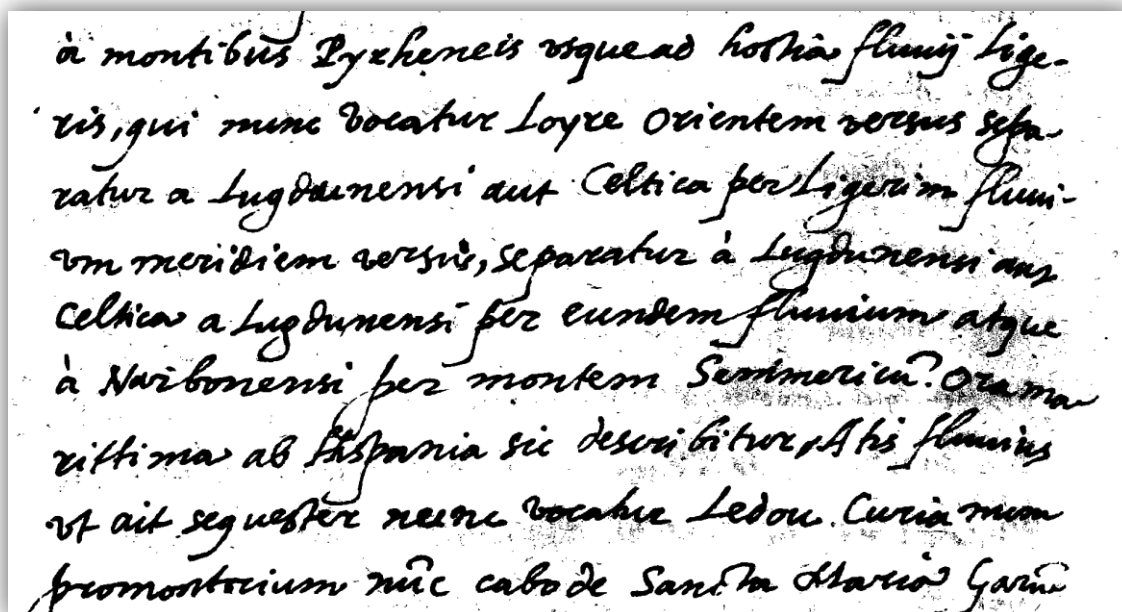 à montibus Pyrheneis vsque ad hostia fluuij Lige-
ris, qui nunc vocatur Loyre Orientem versus sepa-
ratur a Lugdunensi aut Celtica per Ligerim fluui-
vm meridiem versus, separatur à Lugdunensi aut
Celtica a Lugdunensi per eundem fluuium atque
à Narbonensi per montem Semmericū. Ora ma
rittima ab Hispania sic describitur, Atis fluuius
vt ait sequester nunc vocatur Ledou. Curianum
promontorium nūc cabo de Sancta Maria